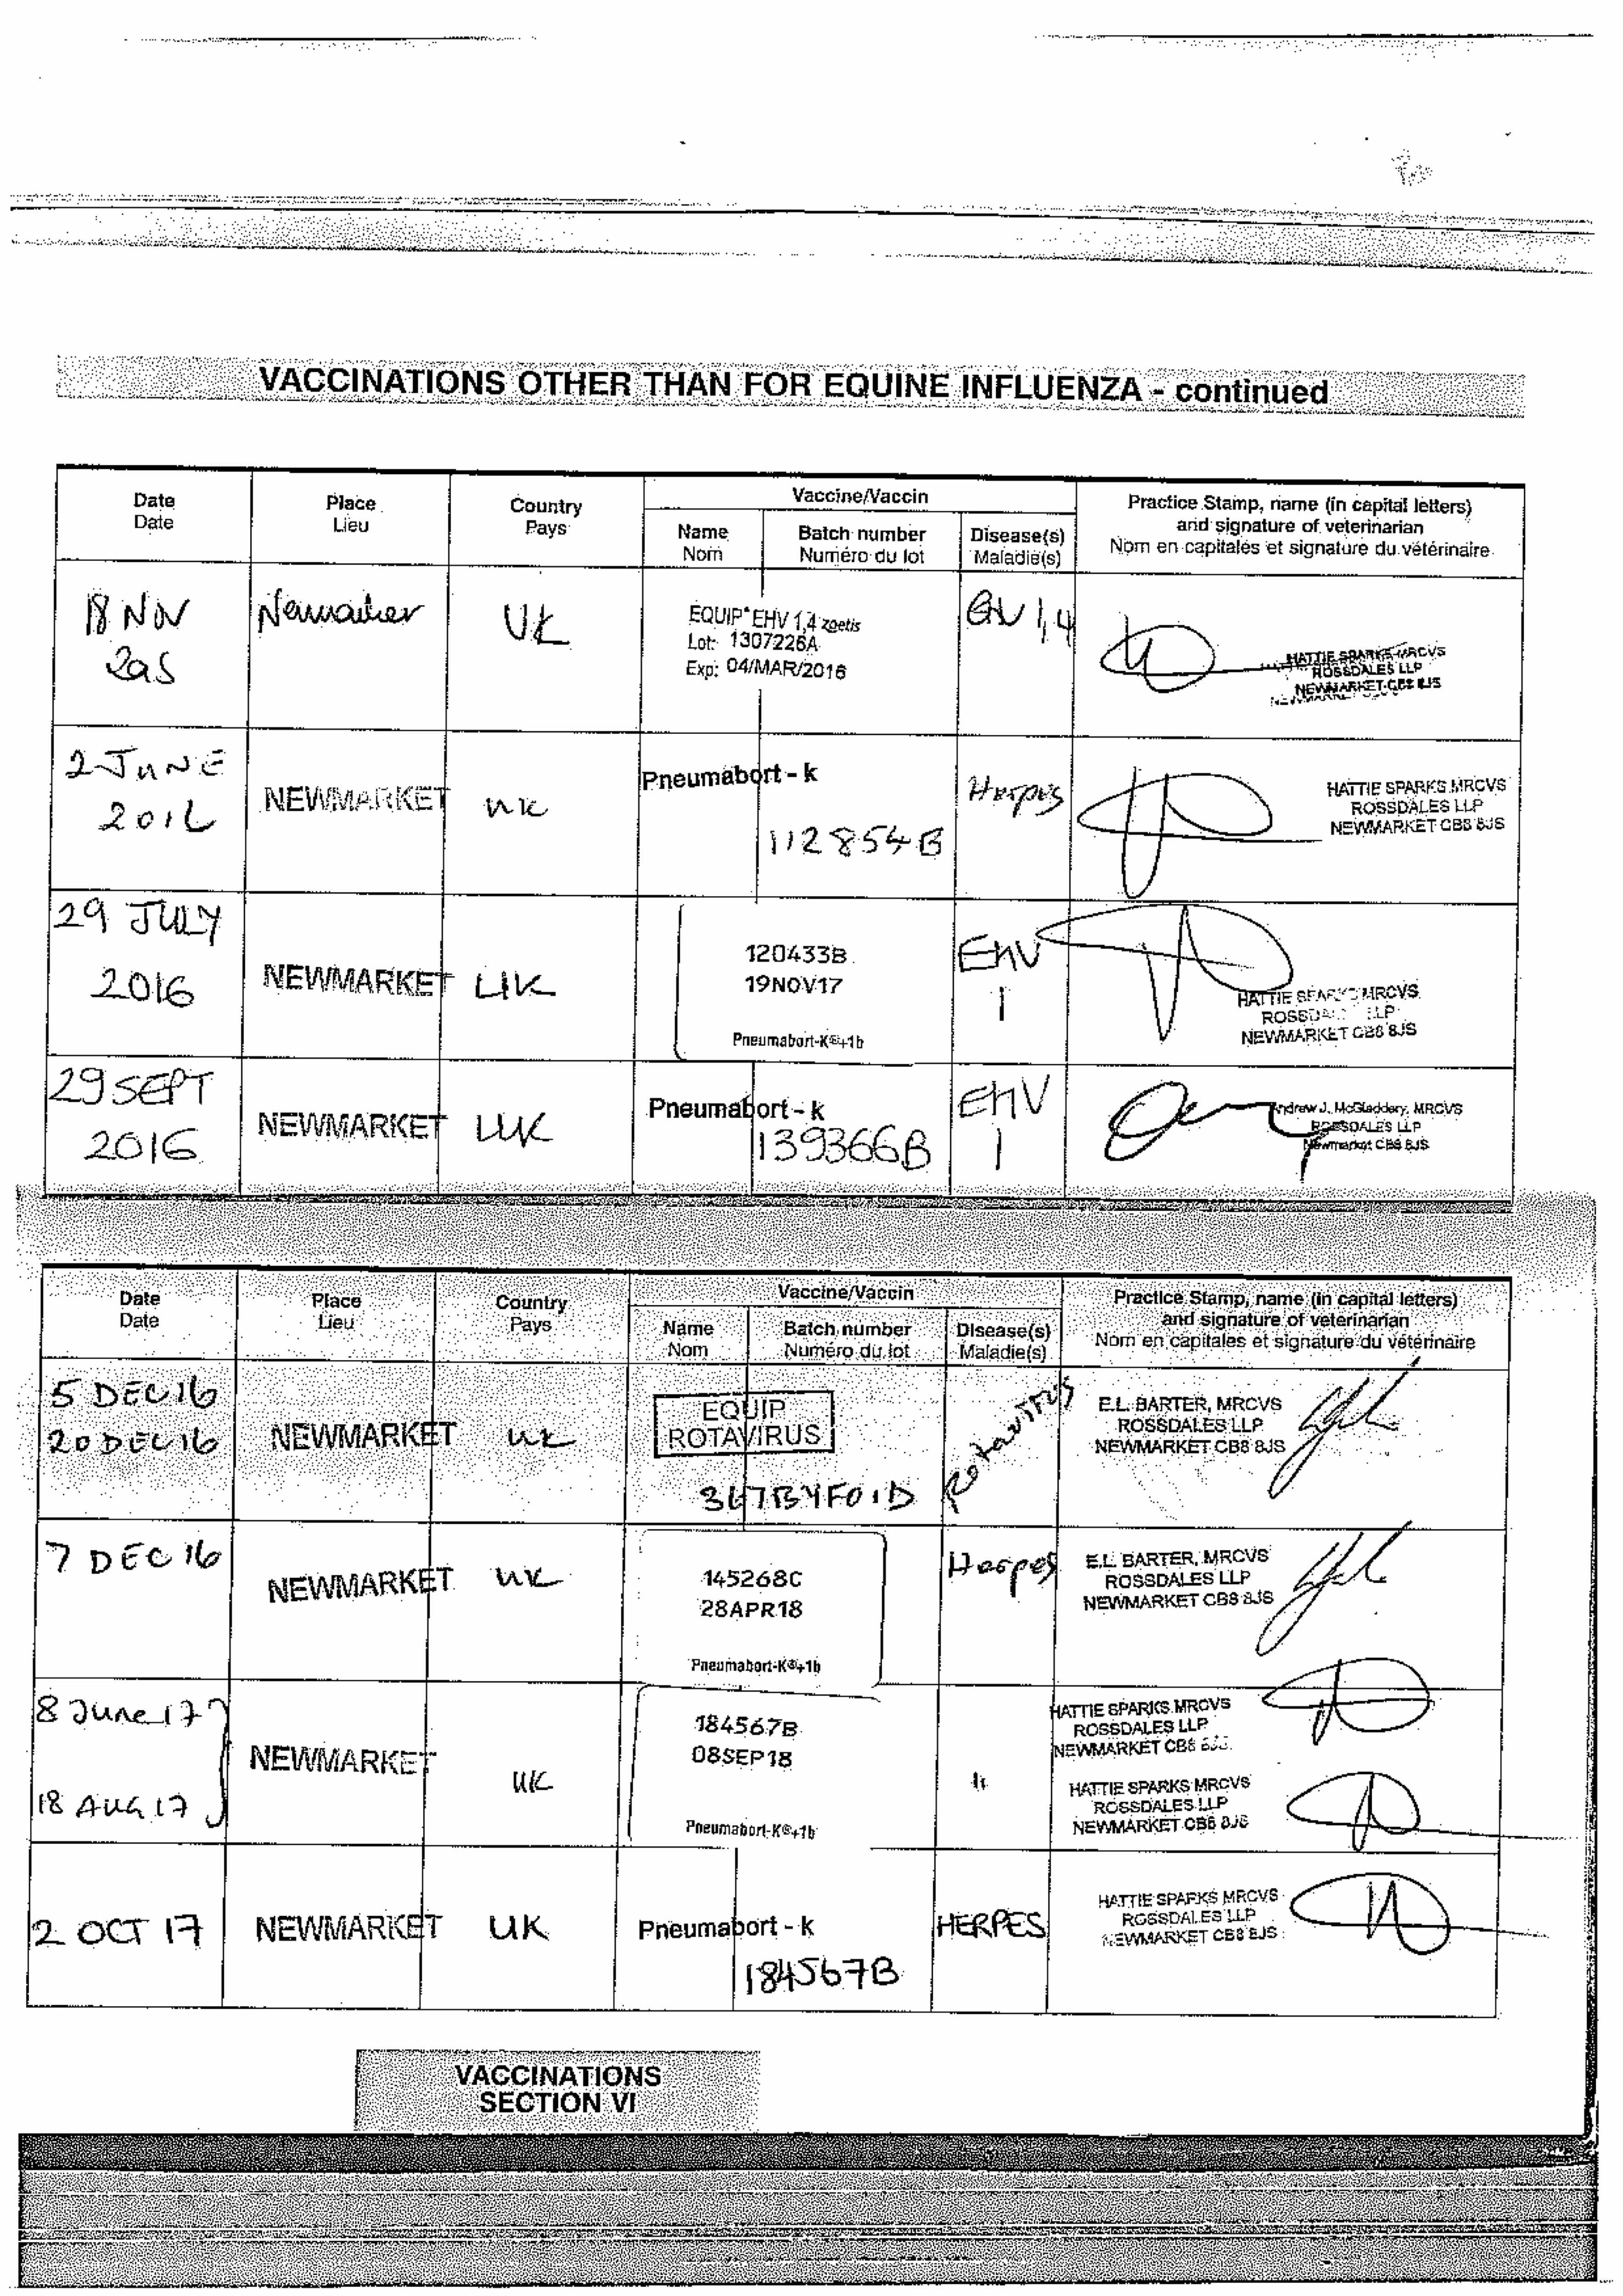 VACCINATIONS OTHER THAN FOR EQUINE INFLUENZA - continued
Date
Date
Place
Lieu
Country
Pays
Vaccine/Vaccin
Name
Nom
Batch number
Numéro du lot
Disease(s)
Maladie(s)
Practice Stamp, name (in capital letters)
and signature of veterinarian
Nom en capitales et signature du vétérinaire
18 NOV
UK
EQUIP EHV 1,4 zoetis
Lot: 1307226A
Exp: 04/MAR/2016
EHV 1,4
HATTIE SPARKS MRCVS
ROSSDALES LLP
NEWMARKET CB8 8JS
2 JUNE
2016
NEWMARKET
UK
Pneumabort - k
112854B
Herpes
HATTIE SPARKS MRCVS
ROSSDALES LLP
NEWMARKET CB8 8JS
29 JULY
2016
NEWMARKET
UK
120433B
19NOV17
Pneumabort-K®+1b
EHV
1
HATTIE SPARKS MRCVS
ROSSDALES LLP
NEWMARKET CB8 8JS
29 SEPT
2016
NEWMARKET
UK
Pneumabort - k
139366B
EHV
1
Andrew J. McGladdery, MRCVS
ROSSDALES LLP
Newmarket CB8 8JS
Date
Date
Place
Lieu
Country
Pays
Vaccine/Vaccin
Name
Nom
Batch number
Numéro du lot
Disease(s)
Maladie(s)
Practice Stamp, name (in capital letters)
and signature of veterinarian
Nom en capitales et signature du vétérinaire
5 DEC 16
20 DEC 16
NEWMARKET
UK
EQUIP
ROTAVIRUS
Rotavirus
E.L. BARTER, MRCVS
ROSSDALES LLP
NEWMARKET CB8 8JS
7 DEC 16
NEWMARKET
UK
145268C
28APR18
Pneumabort-K®+1b
Herpes
E.L. BARTER, MRCVS
ROSSDALES LLP
NEWMARKET CB8 8JS
8 June 17
18 AUG 17
NEWMARKET
UK
184567B
08SEP18
Pneumabort-K®+1b
"
HATTIE SPARKS MRCVS
ROSSDALES LLP
NEWMARKET CB8 8JS
HATTIE SPARKS MRCVS
ROSSDALES LLP
NEWMARKET CB8 8JS
2 OCT 17
NEWMARKET
UK
Pneumabort - k
184567B
HERPES
HATTIE SPARKS MRCVS
ROSSDALES LLP
NEWMARKET CB8 8JS
VACCINATIONS
SECTION VI